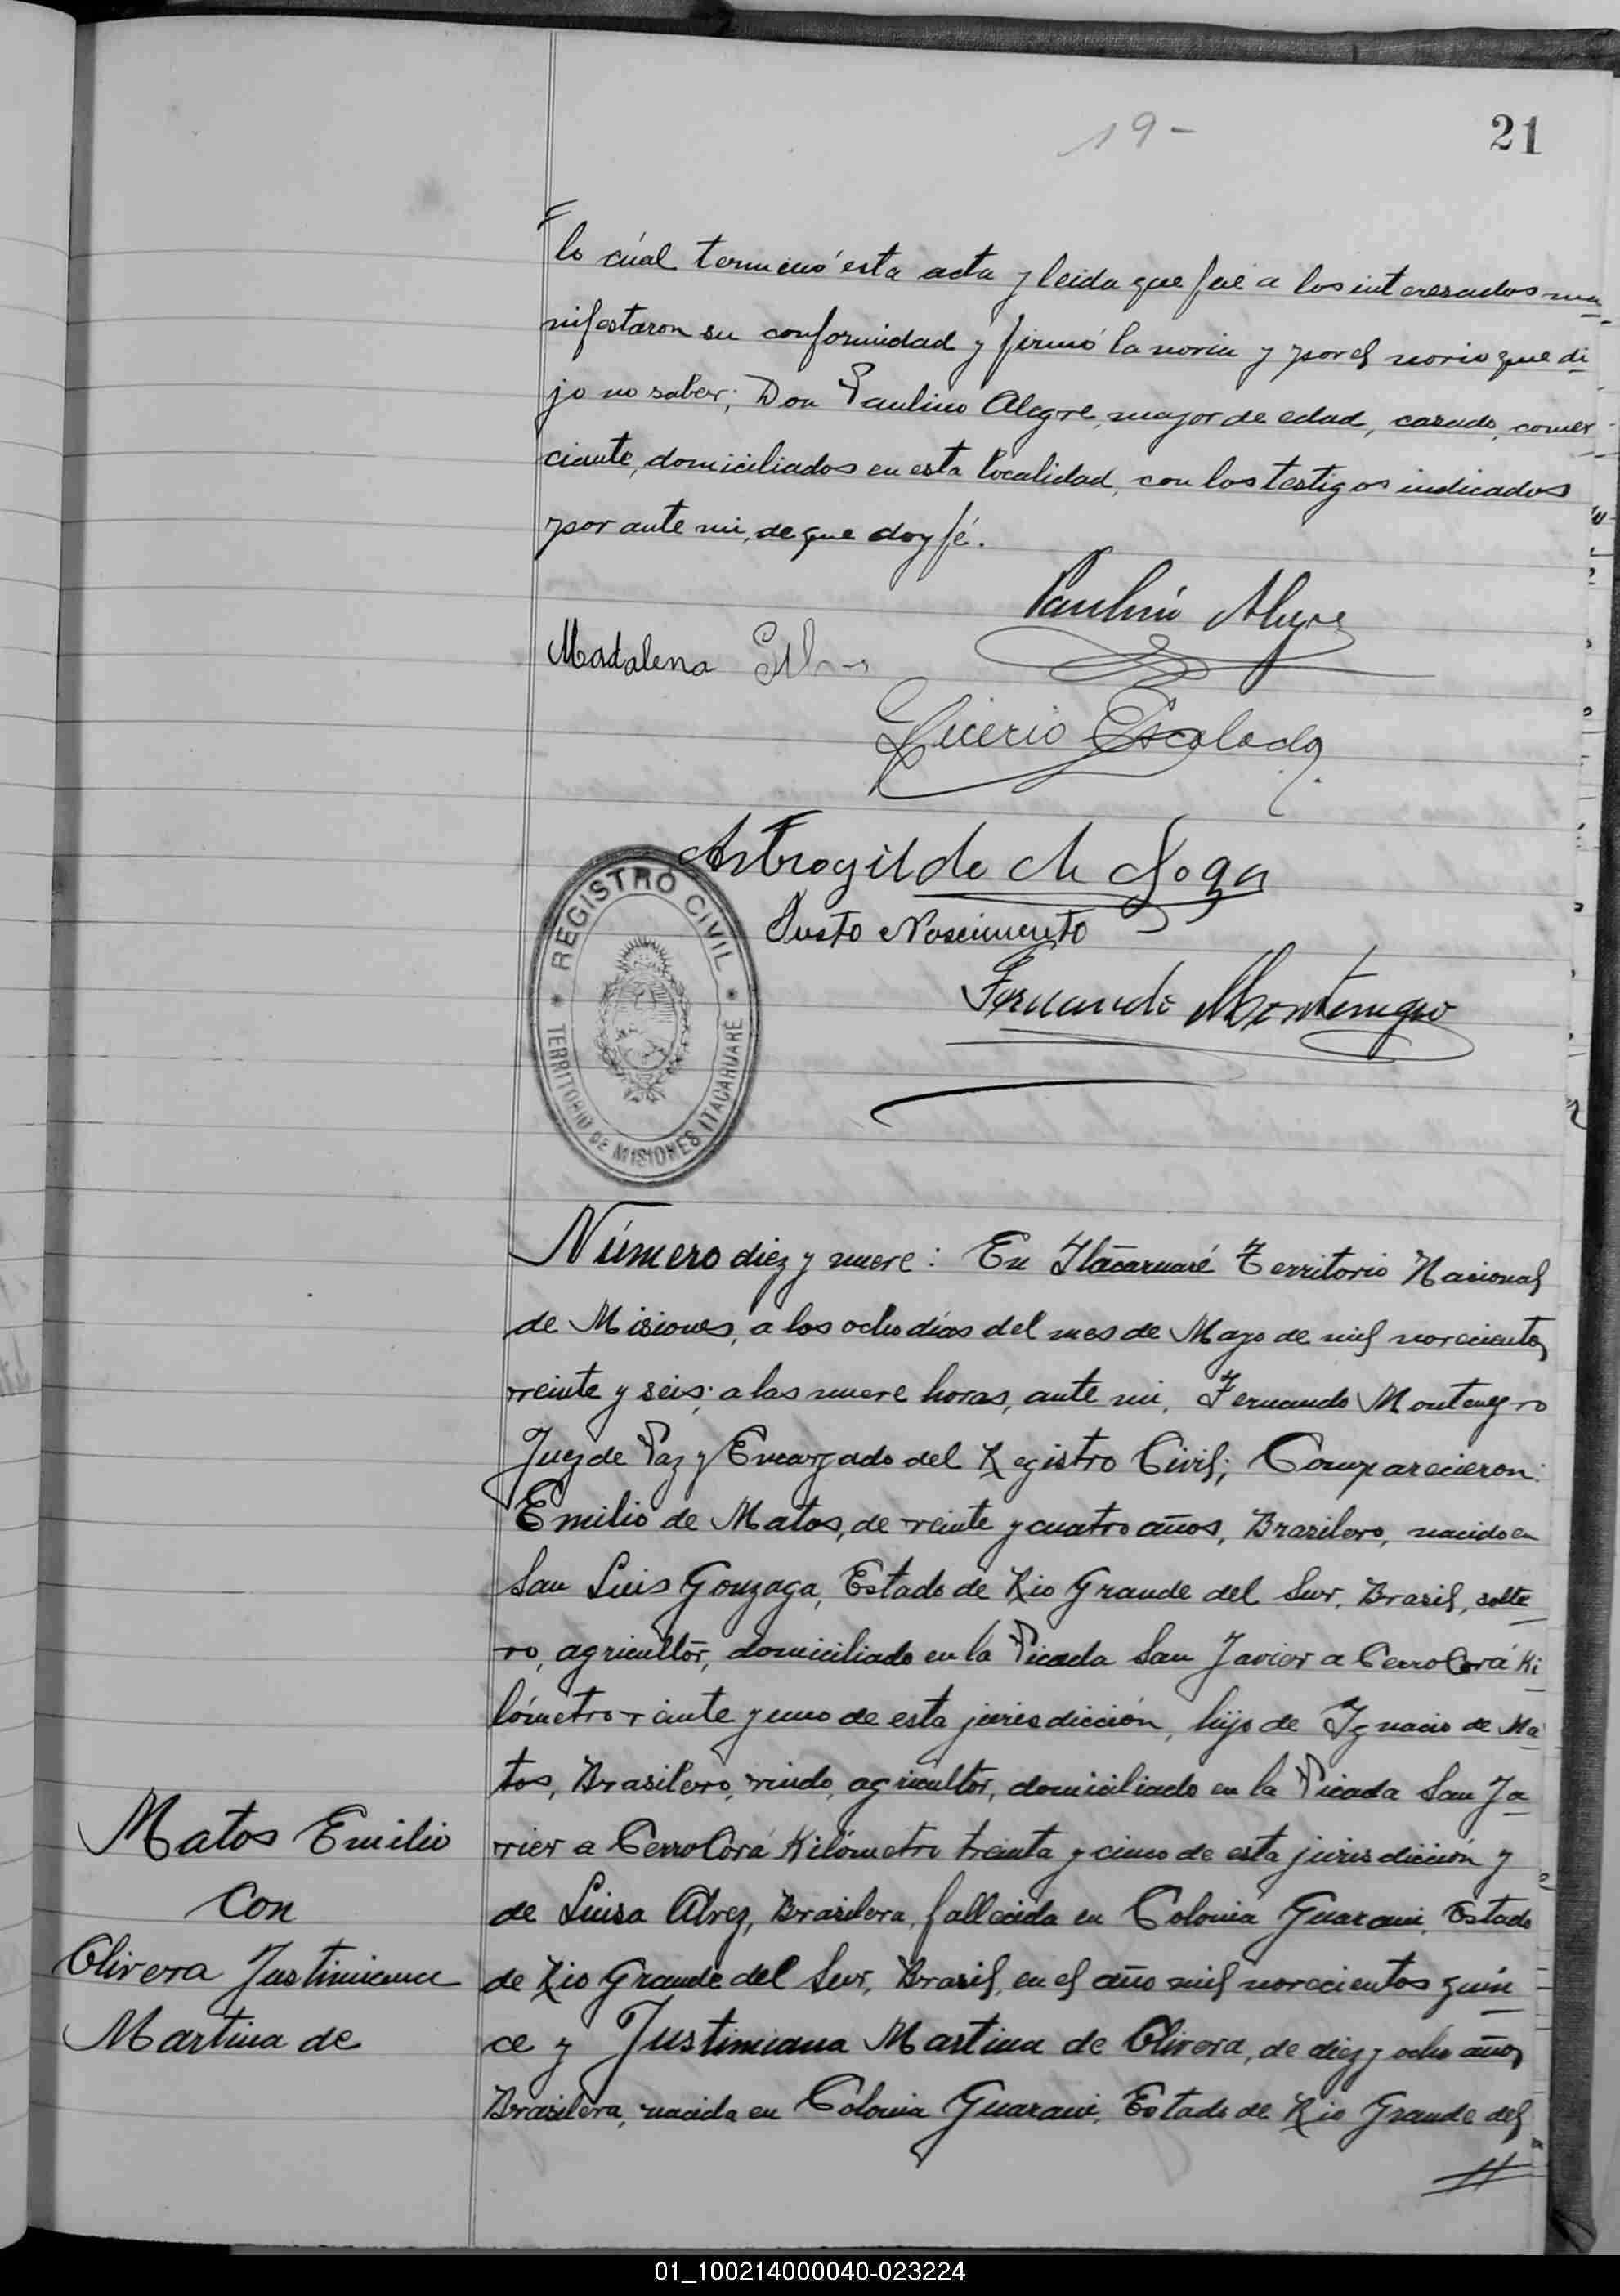 19-
21
lo cúal terminó esta acta y leida que fué a los interesados ma
nifestaron su conformidad y firmó la novia y por el novio que di
jo no saber; Don Paulino Alegre, mayor de edad, casado, comer
ciante, domiciliados en esta localidad, con los testigos indicados
por ante mi, de que doy fé.
Paulino Alegre
Madalena
Glicerio Escalada
Astrogildo
Justo Nascimento
Fernando Montenegro
REGISTRO CIVIL
TERRITORIO DE MISIONES ITACARUARÉ
Número diez y nueve: En Itácaruaré Territorio Nacional
de Misiones, a los ocho días del mes de Mayo de mil novecientos
veinte y seis; a las nueve horas, ante mi, Fernando Montenegro
Juez de Paz y Encargado del Registro Civil; Comparecieron:
Emilio de Matos, de veinte y cuatro años, Brasilero, nacido en
San Luis Gonzaga, Estado de Rio Grande del Sur, Brasil, solte
ro, agricultór, domiciliado en la Picada San Javier a Cerro Corá Ki
lómetro viente y uno de esta jurisdicción, hijo de Ignacio de Ma
tos, Brasilero, viudo, agricultór, domiciliado en la Picada San Ja
vier a Cerro Corá Kilómetro treinta y cinco de esta jurisdicción y
de Luisa Alvez, Brasilera, fallecida en Colonia Guarani, Estado
de Rio Grande del Sur, Brasil, en el año mil novecientos quin
ce y Justimiana Martina de Olivera, de diez y ocho años
Brasilera, nacida en Colonia Guarani, Estado de Rio Grande del
Matos Emilio
Con
Olivera Justimiana
Martina de
01_100214000040-023224